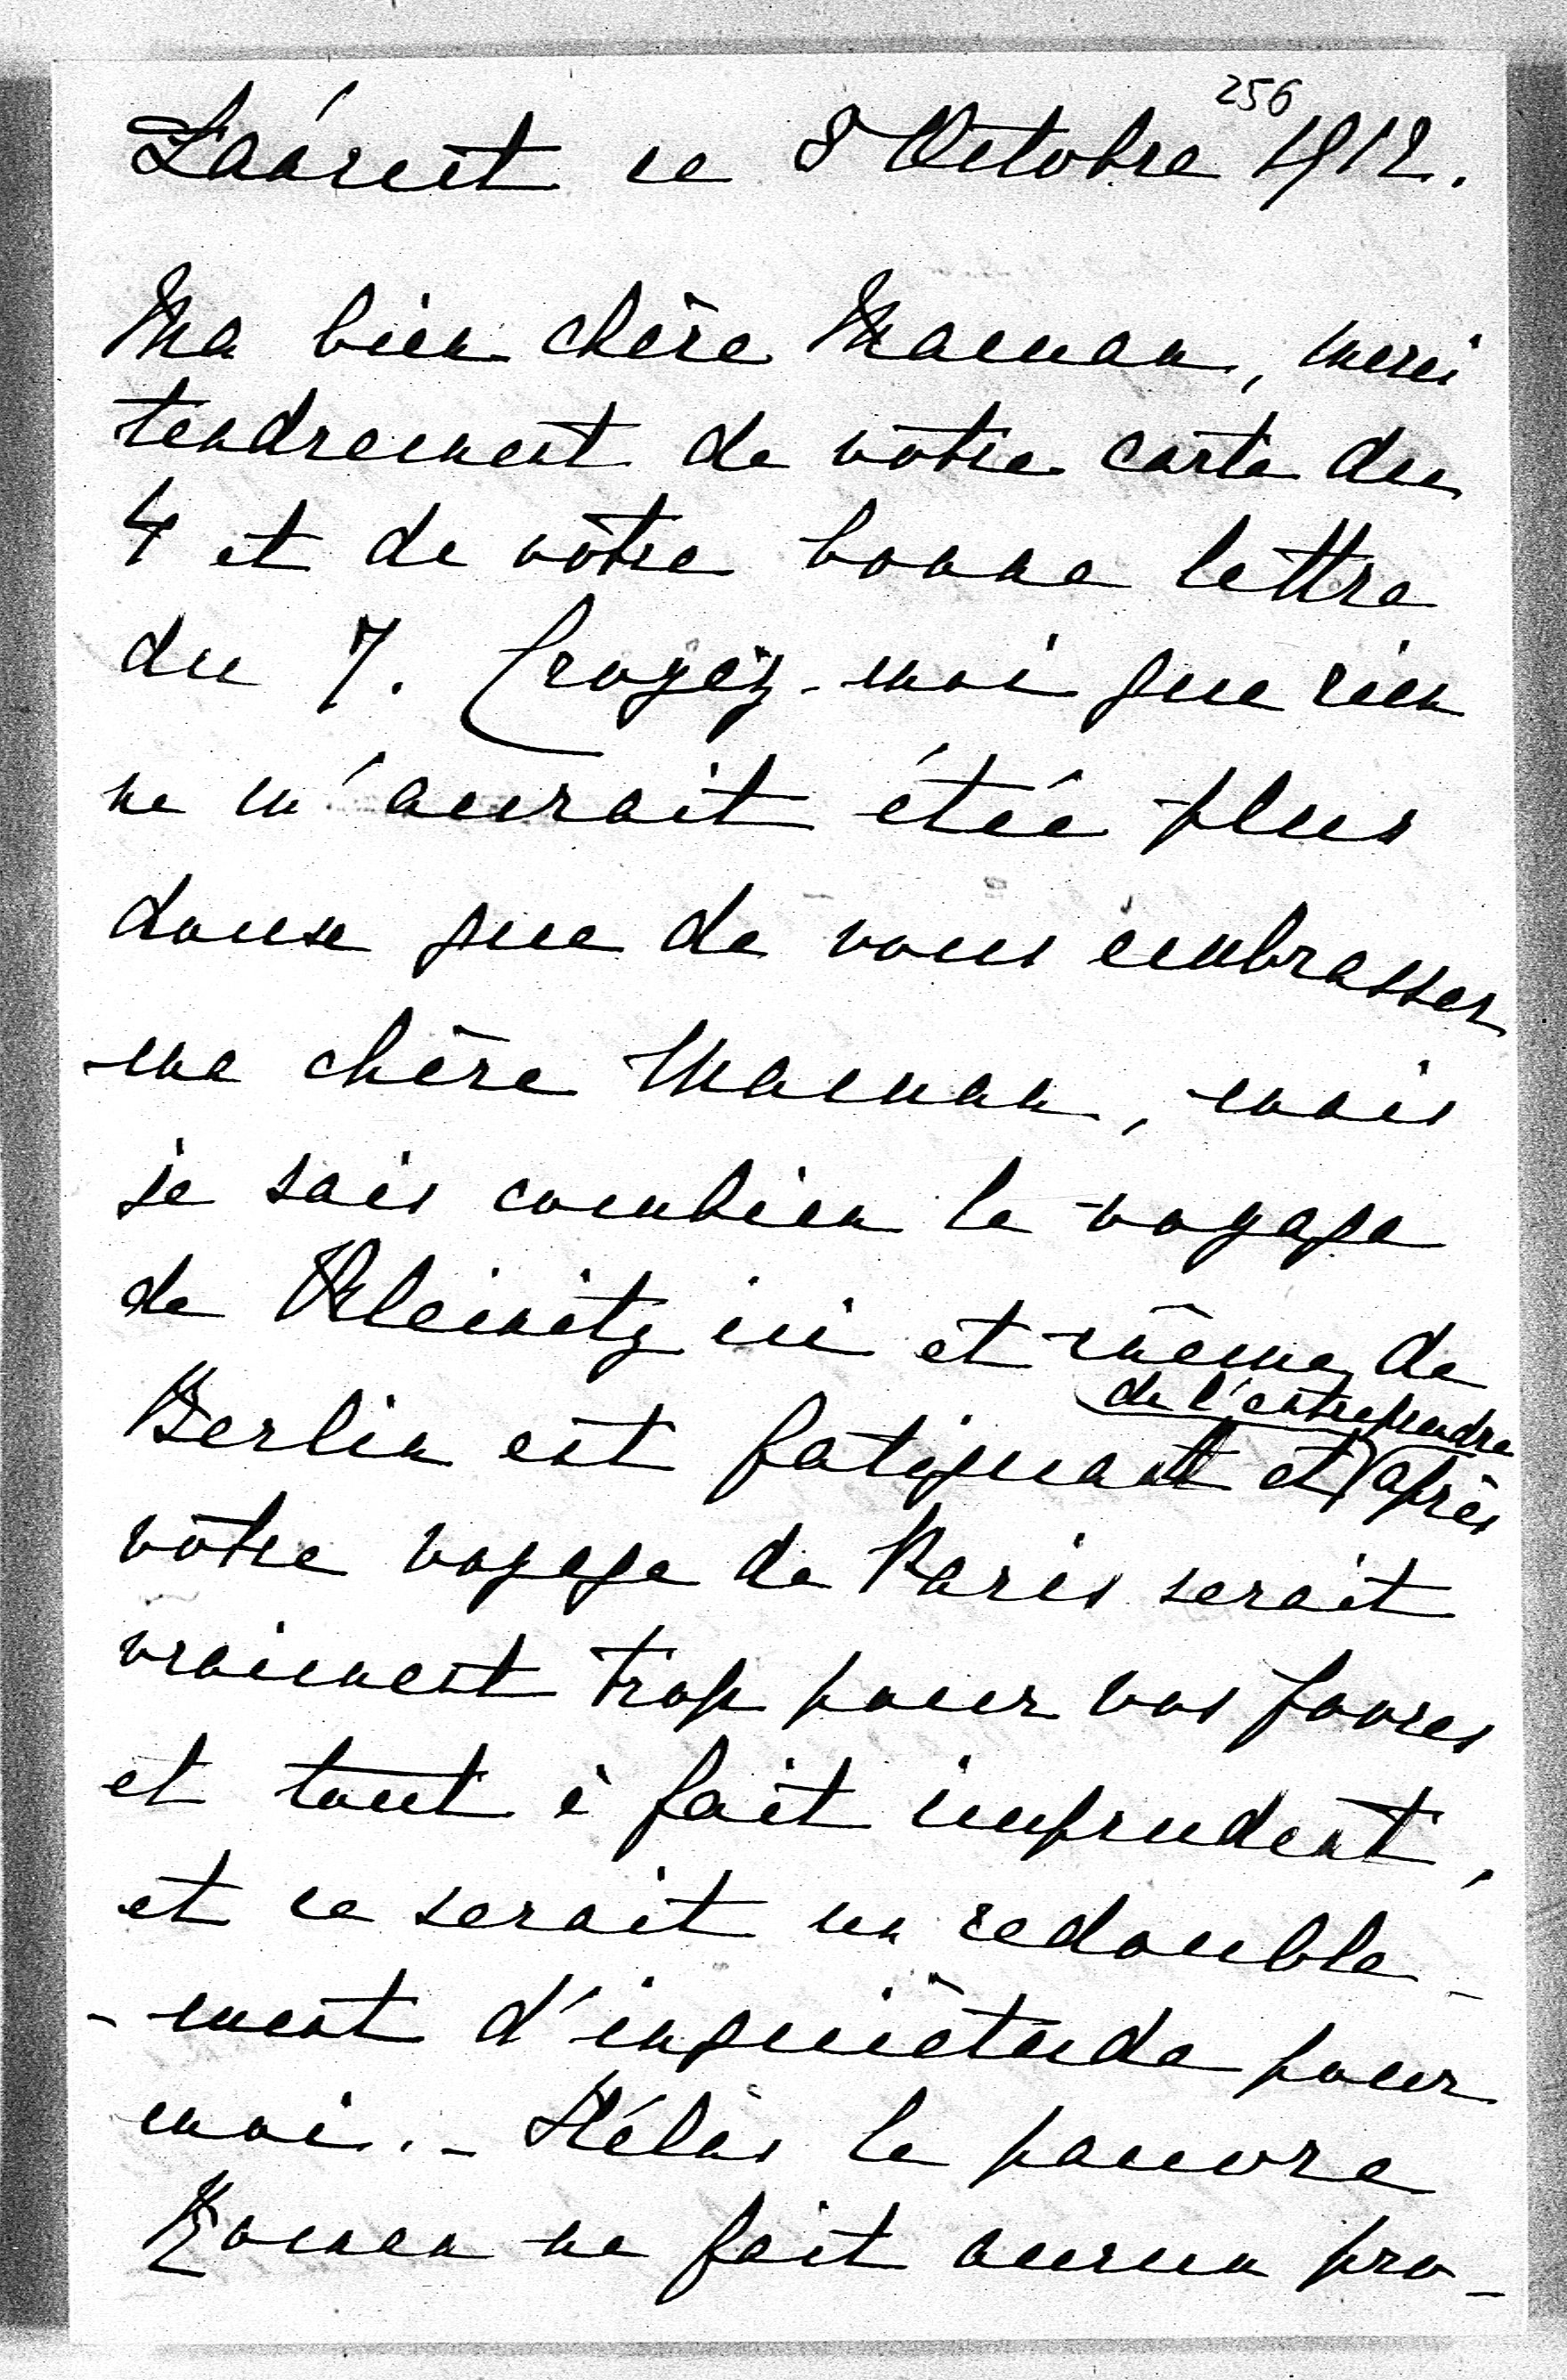 256
Laáreit ce 8 Octobre 1912.
Ma bien chère Maman, merci
tendrement de votre carte du
4 et de vôtre bonne lettre
du 7. Croyez-moi que rien
ne m'aurait étée plus
doux que de vous embrasser
ma chère Maman, mais
je sais combien le voyage
de Kleinitz ici et même de
de l'entreprendre
Berlin est fatiguant et après
vôtre voyage de Paris serait
vraiment trop pour vos forces
et tout à fait imprudent,
et ce serait un redouble-
-ment d'inquiètude pour
moi. - Hélas le pauvre
ne fait aucun pro-